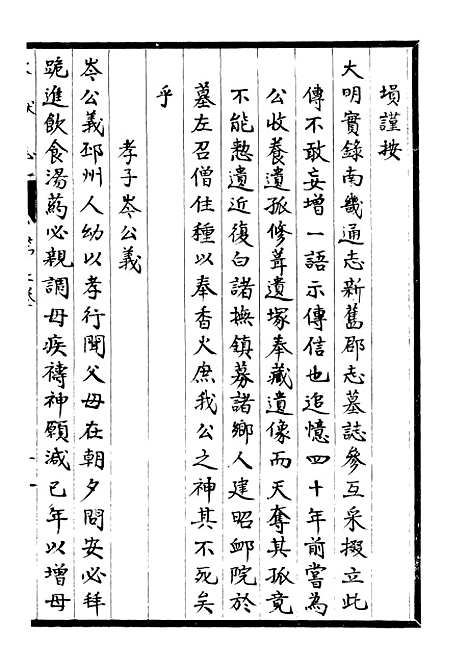 塤謹按
大明實錄南畿通志新舊郡志墓誌參互采掇立此
傳不敢妄增一語示傳信也追憶四十年前嘗為
公收養遺孤修葺遺塚奉藏遺像而天奪其孤竟
不能憗遺近復白諸撫鎮募諸鄉人建昭卹院於
墓左召僧住種以奉香火庶我公之神其不死矣
乎
孝子岑公義
岑公義邳州人幼以孝行聞父母在朝夕問安必拜
跪進飲食湯藥必親調母疾禱神願減己年以增母